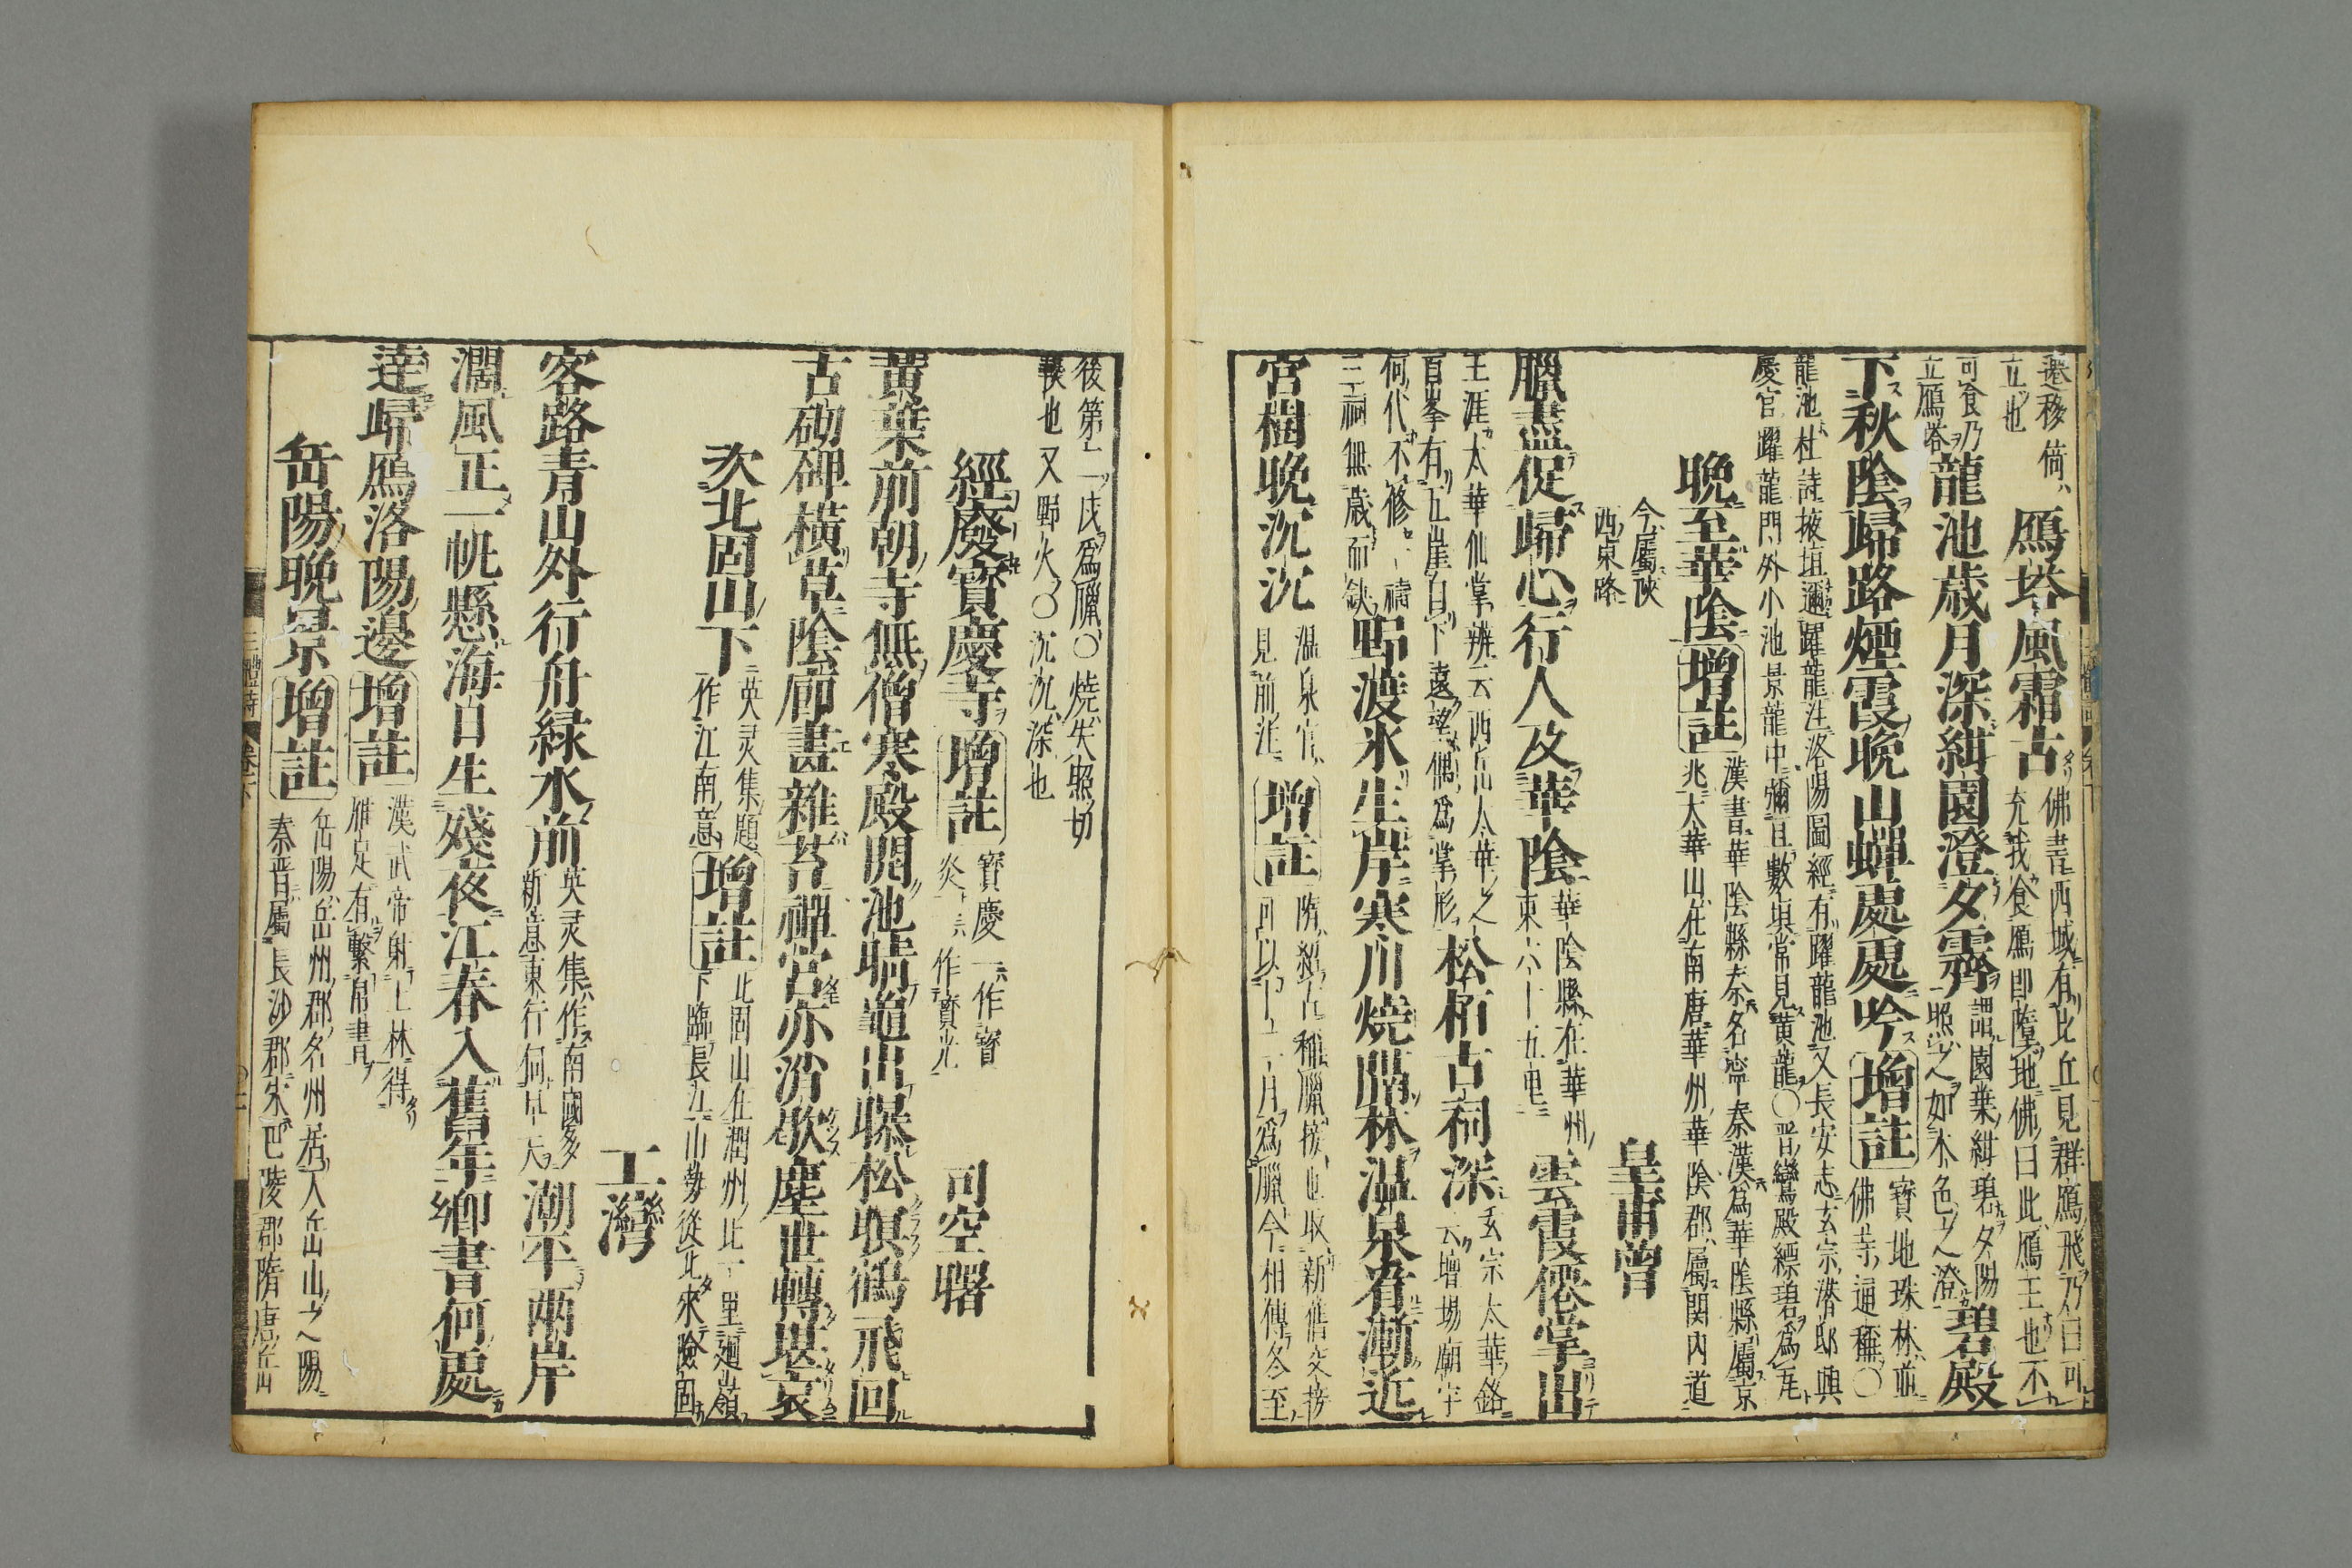 遷移倚
立也
鴈塔風霜古
佛書西域有比丘見群鴈飛乃曰可
充我食鴈即墮地佛曰此鴈王也不
可食乃
立鴈塔
龍池歳月深紺園澄夕霽
謂園葉紺碧夕陽
照之如木色之澄
碧殿
下秋陰歸路煙霞晩山蟬處處吟
増註
寶地珠林並
佛寺通稱〇
龍池杜詩掖垣邇躍龍注洛陽圖經有躍龍池又長安志玄宗潜邸興
慶宮躍龍門外小池景龍中彌亘數塡常見黄龍〇晋鸞殿縹碧爲尾
晩至華陰
増註
漢書華陰縣秦名寧秦漢爲華陰縣屬京
兆太華山在南唐華州華陰郡屬関内道
今屬陜
西東路
皇甫曾
臘盡促歸心行人及華陰
華陰縣在華州
東六十五里
雲霞僊掌出
王涯太華仙掌辨云西岳太華之
首峯有五崖自下遠望偶爲掌形
松栢古祠深
玄宗太華銘
云增場廟宇
何代不修禱
三祠無歳而缺
野渡氷生岸寒川燒隔林温泉看漸近
宮樹晩沉沉
温泉宮
見前注
増註
可以十二月爲臘今相傳冬至
後第二戌爲臘〇燒失照切
爇也又野火〇沉沉深也
經廢寶慶寺
増註
寶慶一作寶
作寶光
司空曙
黄葉前朝寺無僧寒殿開池晴龜出曝松暝鶴飛回
古砌碑横草陰廊畫雜苔禪宮亦消歇塵世轉堪哀
次北固山下
英灵集題
作江南意
増註
北固山在潤州北一里廻嶺
下臨長江山勢從北來險固
王灣
客路青山外行舟緑水前
英灵集作南國多
新意東行伺早天
潮平兩岸
濶風正一帆懸海日生殘夜江春入舊年卿書何處
達歸鴈洛陽邊
増註
漢武帝射上林得
雁足有繫帛書
岳陽晩景
増註
岳陽岳州郡名州居天岳山之陽
秦晋屬長沙郡宋巴陵郡隋唐岳